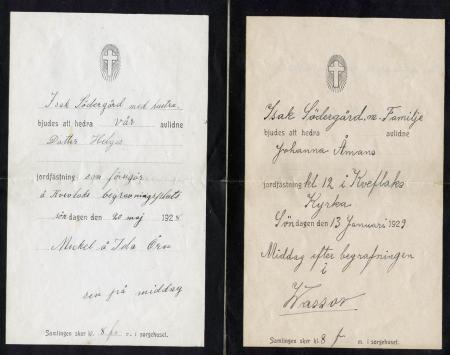 Isak Södergård med hustru
bjudes att hedra vår avlidne
Dotter Helgas
jordfästning som föregår
å Kvevlaks begravningsplats
söndagen den 20 maj 1928
Mickel å Ida Örn
sen på middag
Samlingen sker kl. 8 f m. i sorgehuset.
Isak Södergård m. Familje
bjudes att hedra avlidne
Johanna Åmans
jordfästning kl 12 i Kveflaks
Kyrka
Söndagen den 13 Januari 1929
Middag efter begrafningen
i
Wassor
Samlingen sker kl. 8 f m. i sorgehuset.